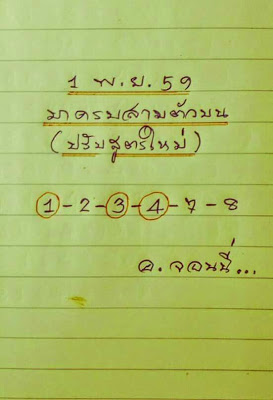 1 พ.ย. 59
มาครบสามตัวบน
(ปรับสูตรใหม่)
1-2-3-4-7-8
อ. จอนนี่...